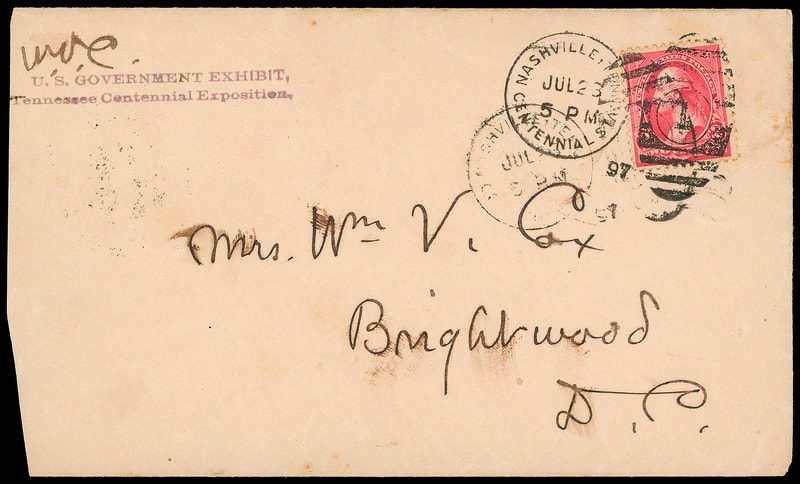 WVC.
U.S. GOVERNMENT EXHIBIT,
Tennessee Centennial Exposition.
NASHVILLE, TENN.
JUL 23
5 PM
CENTENNIAL STA.
97
1
NASHVILLE
JUL
97
Mrs. Wm V. Cox
Brightwood
D.C.